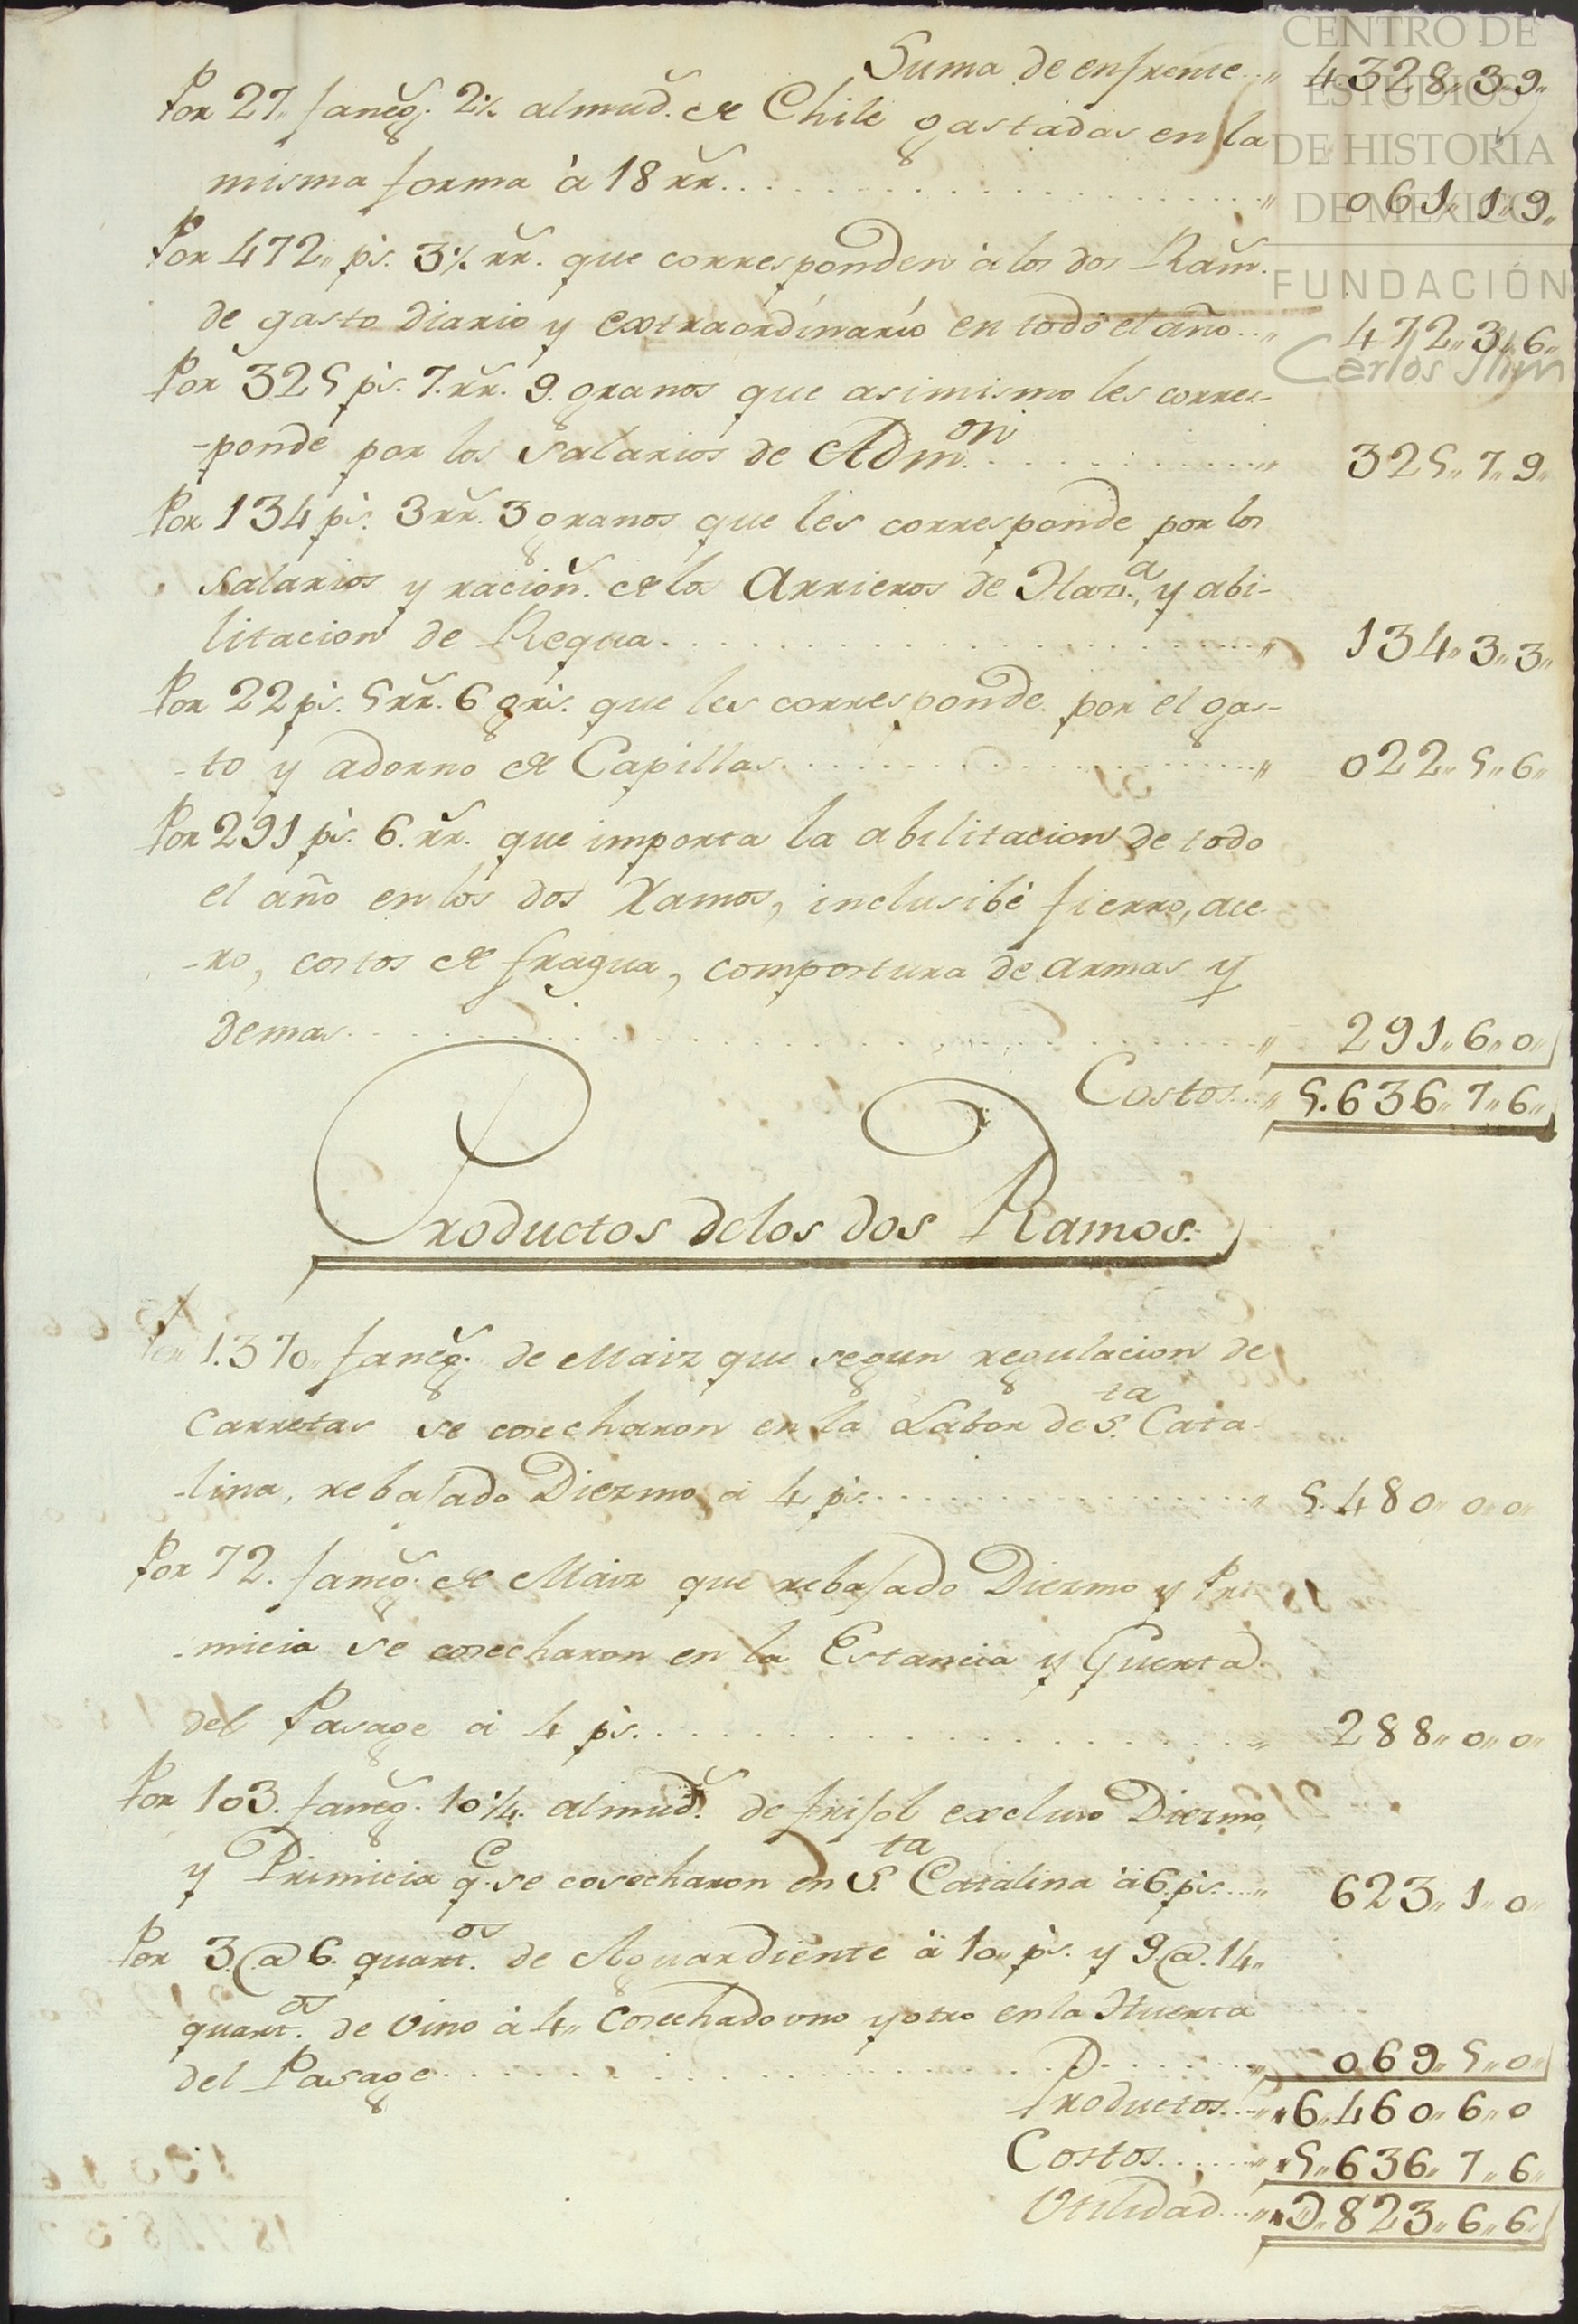 CENTRO DE
ESTUDIOS
DE HISTORIA
DE MEXICO
FUNDACIÓN
Carlos Slim
Suma de enfrente..,, 4.328,,3,,9,,
Por 27,, faneg̃. 2½ almud̃. de Chile gastadas en la
misma forma à 18 rr̃. . . . . ,, 061,,1,,9,,
Por 472,, ps. 3½ rr̃. que corresponden à los dos Ram̃.
de gasto diario y extraordinario en todo el año..,, 472,,3,,6,,
Por 325 ps. 7. rr̃. 9. granos que asimismo les corres-
-ponde por los Salarios de Adm.on . . . . ,, 325,,7,,9,,
Por 134 ps. 3 rr̃. 3 granos que les corresponde por los
Salarios y racion̄. de los Arrieros de Haz.a, y abi-
litacion de Requa. . . . . ,, 134,,3,,3,,
Por 22 ps. 5 rr̃. 6 grs. que les corresponde por el gas-
-to y adorno de Capillas. . . . . ,, 022,,5,,6,,
Por 291 ps. 6. rr̃. que importa la abilitacion de todo
el año en los dos Ramos, inclusibè fierro, ace-
-ro, costos de fragua, compostura de armas y
demas. . . . . ,, 291,,6,,0,,
Costos...,, 5.636,,7,,6,,
Productos delos dos Ramos.
Por 1.370,, faneg̃. de Maiz que segun regulacion de
Carretas se cosecharon en la Labor de S.ta Cata-
-lina, rebajado Diezmo à 4 ps. . . . . ,, 5.480,,0,,0,,
Por 72. faneg̃. de Maiz que rebajado Diezmo y Pri-
-micia se cosecharon en la Estancia y Guerta
del Pasage à 4 ps. . . . . ,, 288,,0,,0,,
Por 103. faneg̃. 10¼. almud̃. de frijol excluso Diezmo,
y Primicia q.e se cosecharon en S.ta Catalina à 6 ps....,, 623,,1,,0,,
Por 3.@ 6. quart.os de Aguardiente à 10,, ps. y 9.@. 14,,
quart.os de Vino à 4,, Cosechado uno y otro en la Huerta
del Pasage. . . . . ,, 069,,5,,0,,
Productos...,, 6,,460,,6,,0
Costos. . . . . ,, 5,,636,,7,,6,,
Utilidad...,, 0,,823,,6,,6,,